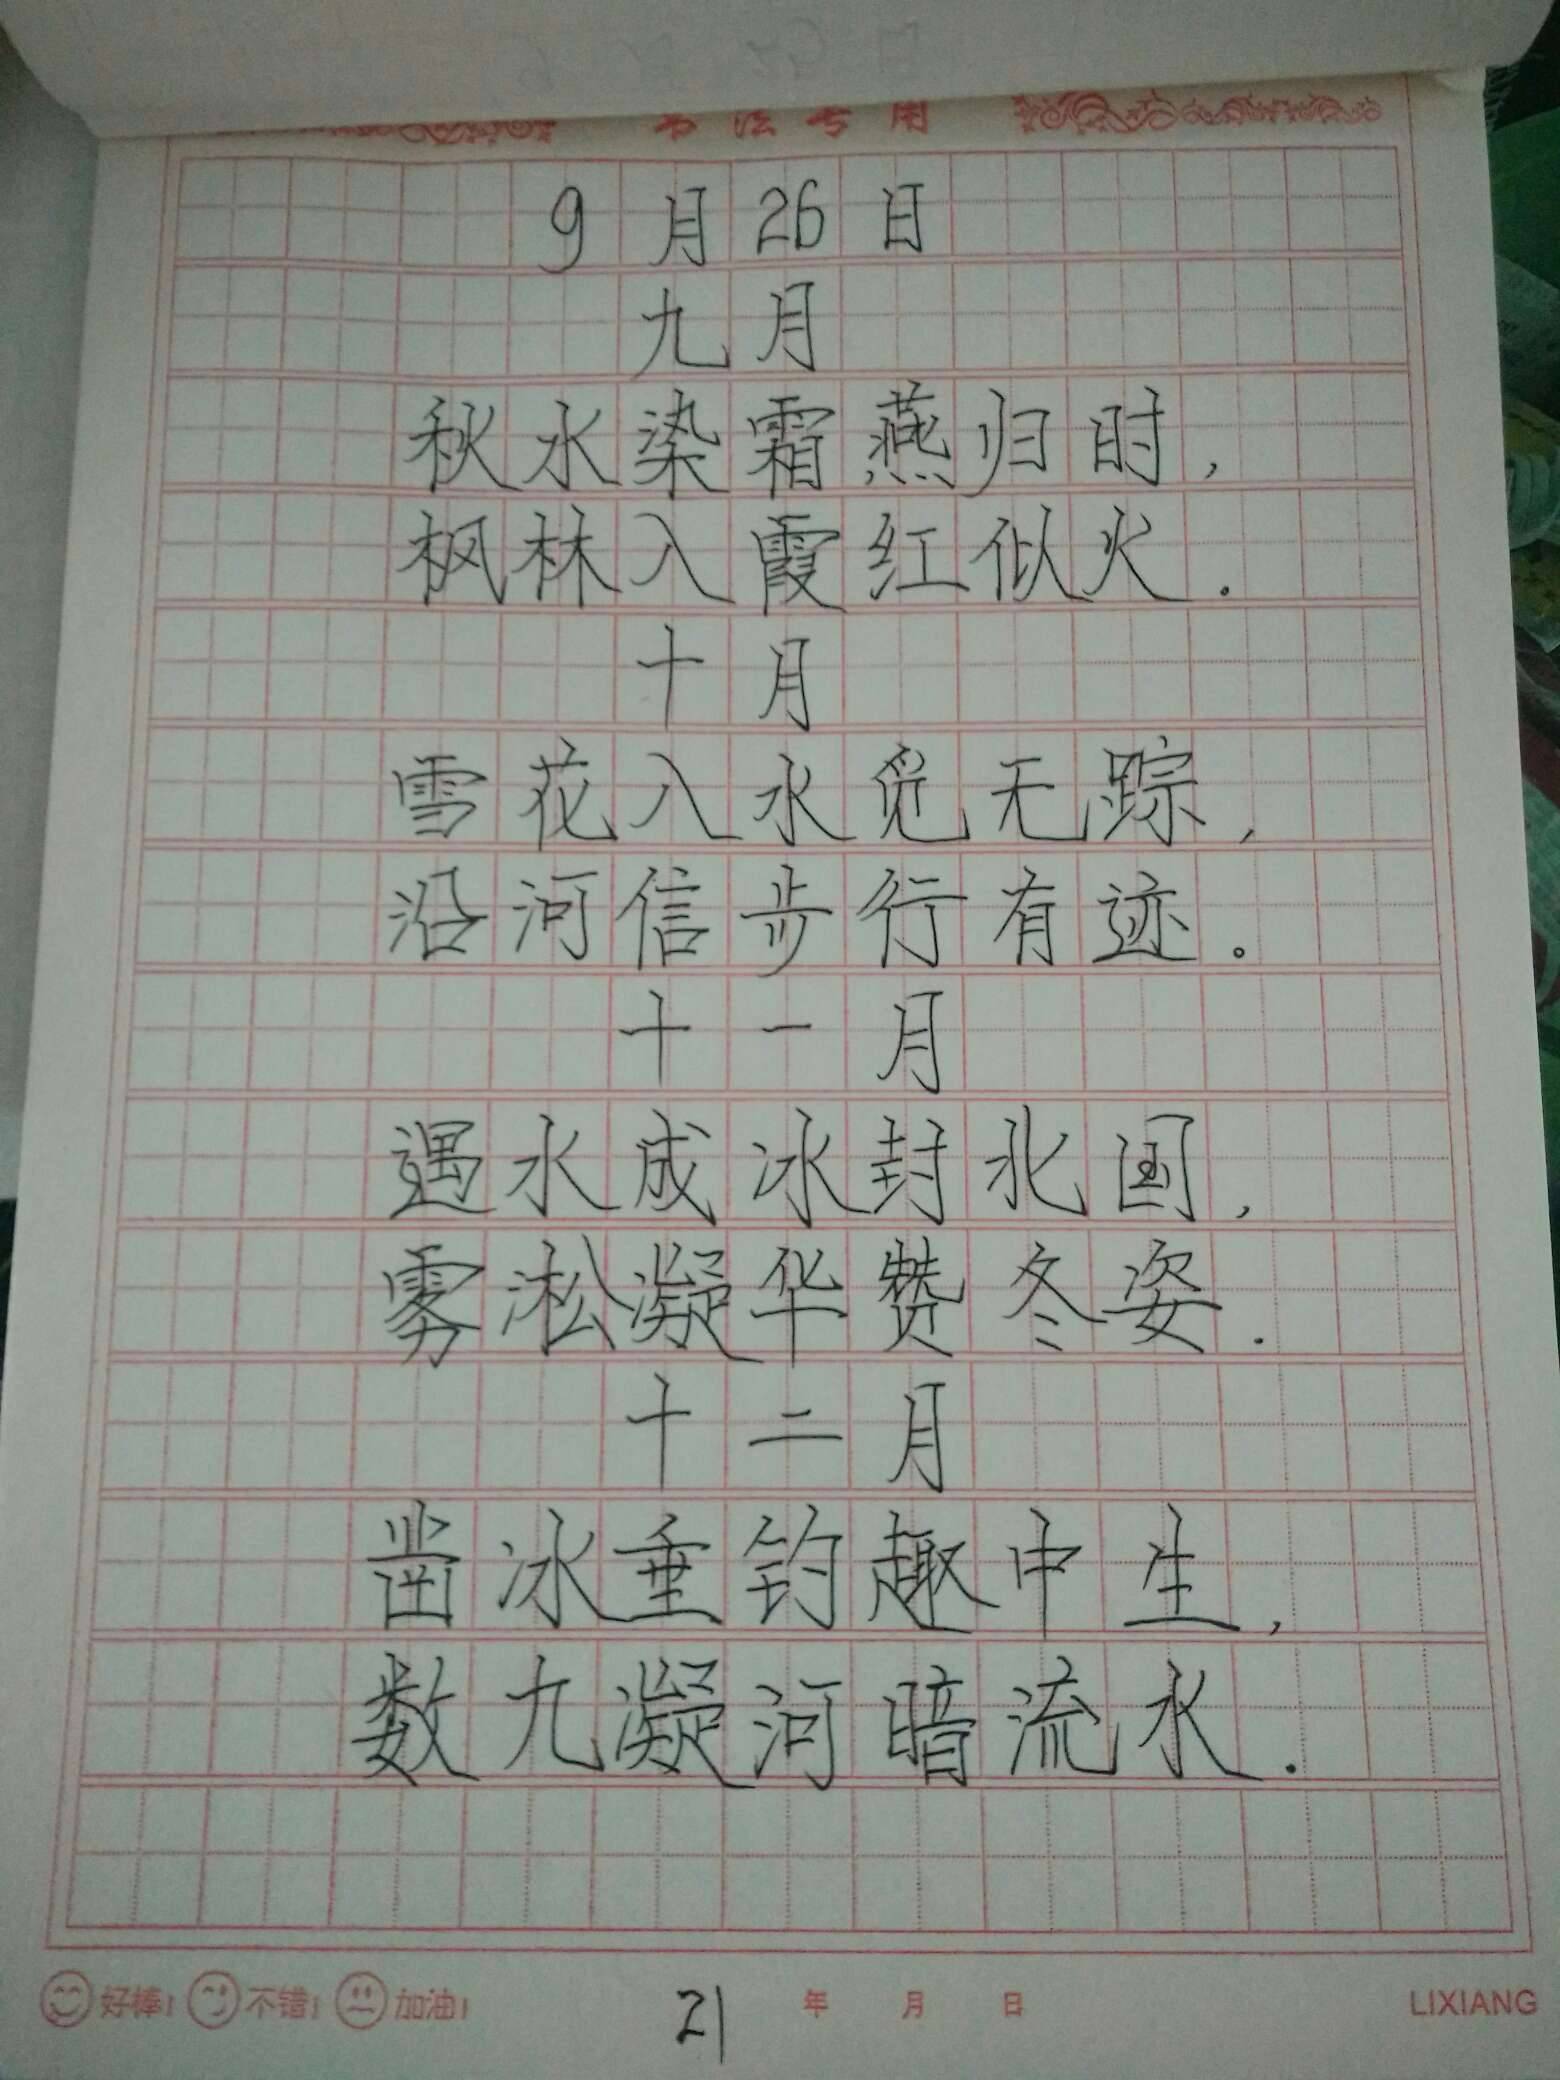 书法专用
9月26日
九月
秋水染霜燕归时,
枫林入霞红似火.
十月
雪花入水觅无踪,
沿河信步行有迹。
十一月
遇水成冰封北国,
雾淞凝华赞冬姿.
十二月
凿冰垂钓趣中生,
数九凝河暗流水.
好棒! 不错! 加油! 21 年 月 日 LIXIANG